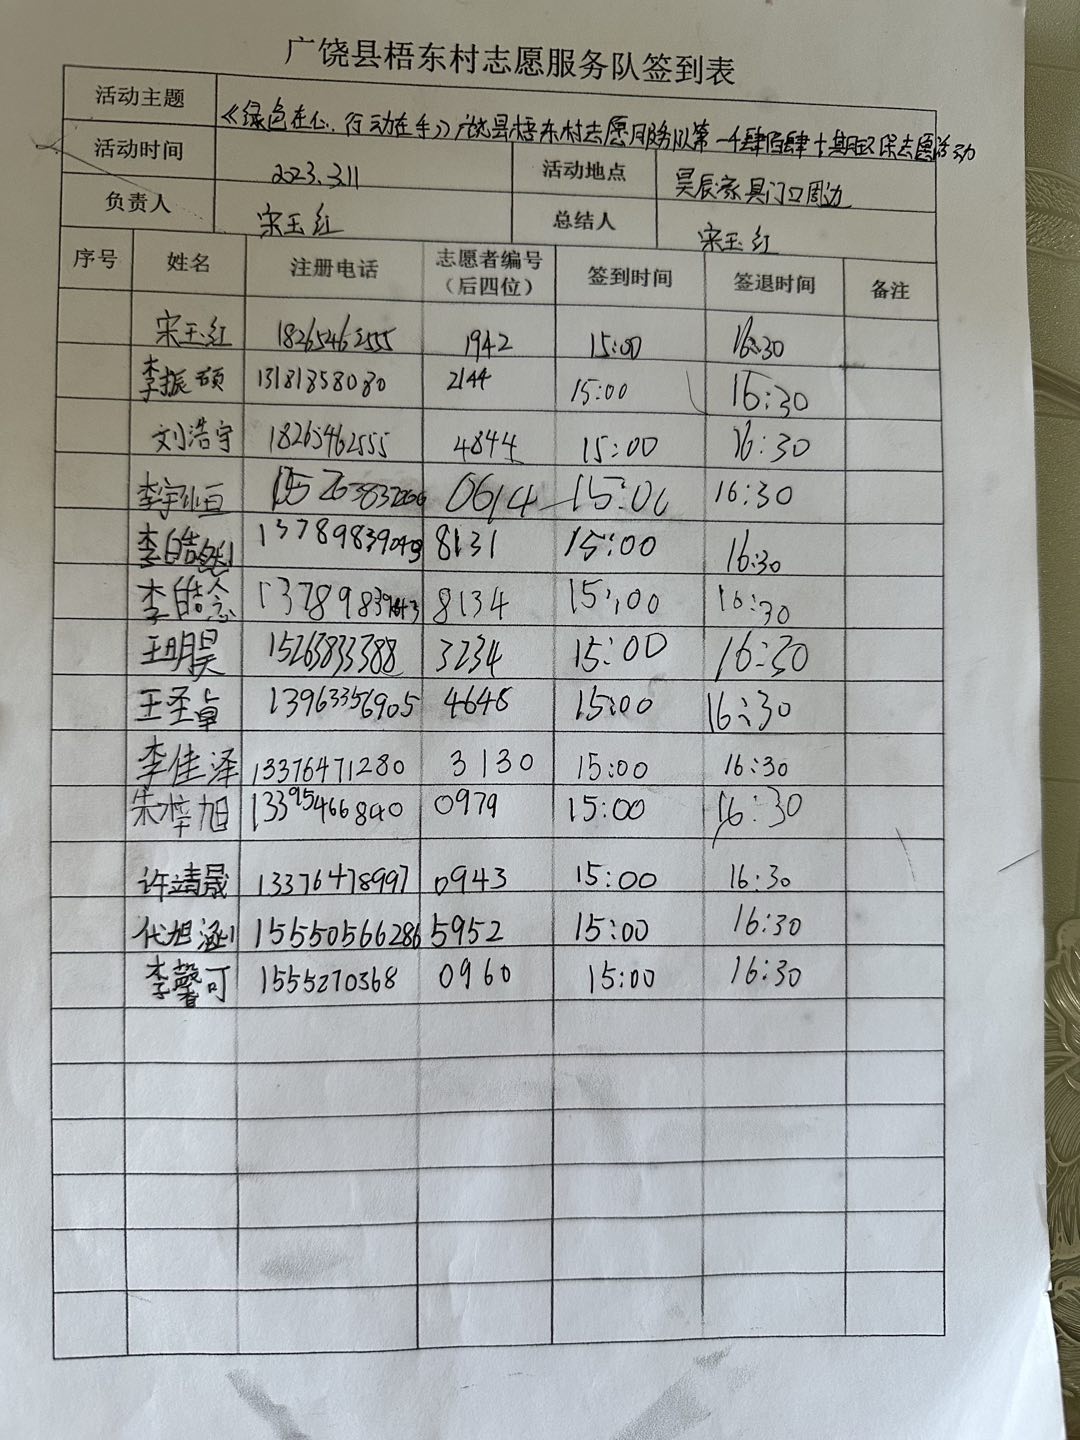 广饶县梧东村志愿服务队签到表
活动主题 《绿色在心、行动在手》广饶县梧东村志愿服务队第一千肆佰肆十期环保志愿活动
活动时间 2023.3.11 活动地点 昊辰家具门口周边
负责人 宋玉红 总结人 宋玉红
序号 姓名 注册电话 志愿者编号（后四位） 签到时间 签退时间 备注
宋玉红 18265462555 1942 15:00 16:30
李振硕 13181858080 2144 15:00 16:30
刘浩宇 18265462555 4844 15:00 16:30
李宇恒 0614 15:00 16:30
李皓然 8131 15:00 16:30
李皓念 8134 15:00 16:30
王明昊 15263833388 3234 15:00 16:30
王圣卓 13963356905 4648 15:00 16:30
李佳泽 13376471280 3130 15:00 16:30
朱梓旭 13395466840 0979 15:00 16:30
许靖晟 13376478997 0943 15:00 16:30
代旭涵 15550566286 5952 15:00 16:30
李馨可 1555270368 0960 15:00 16:30